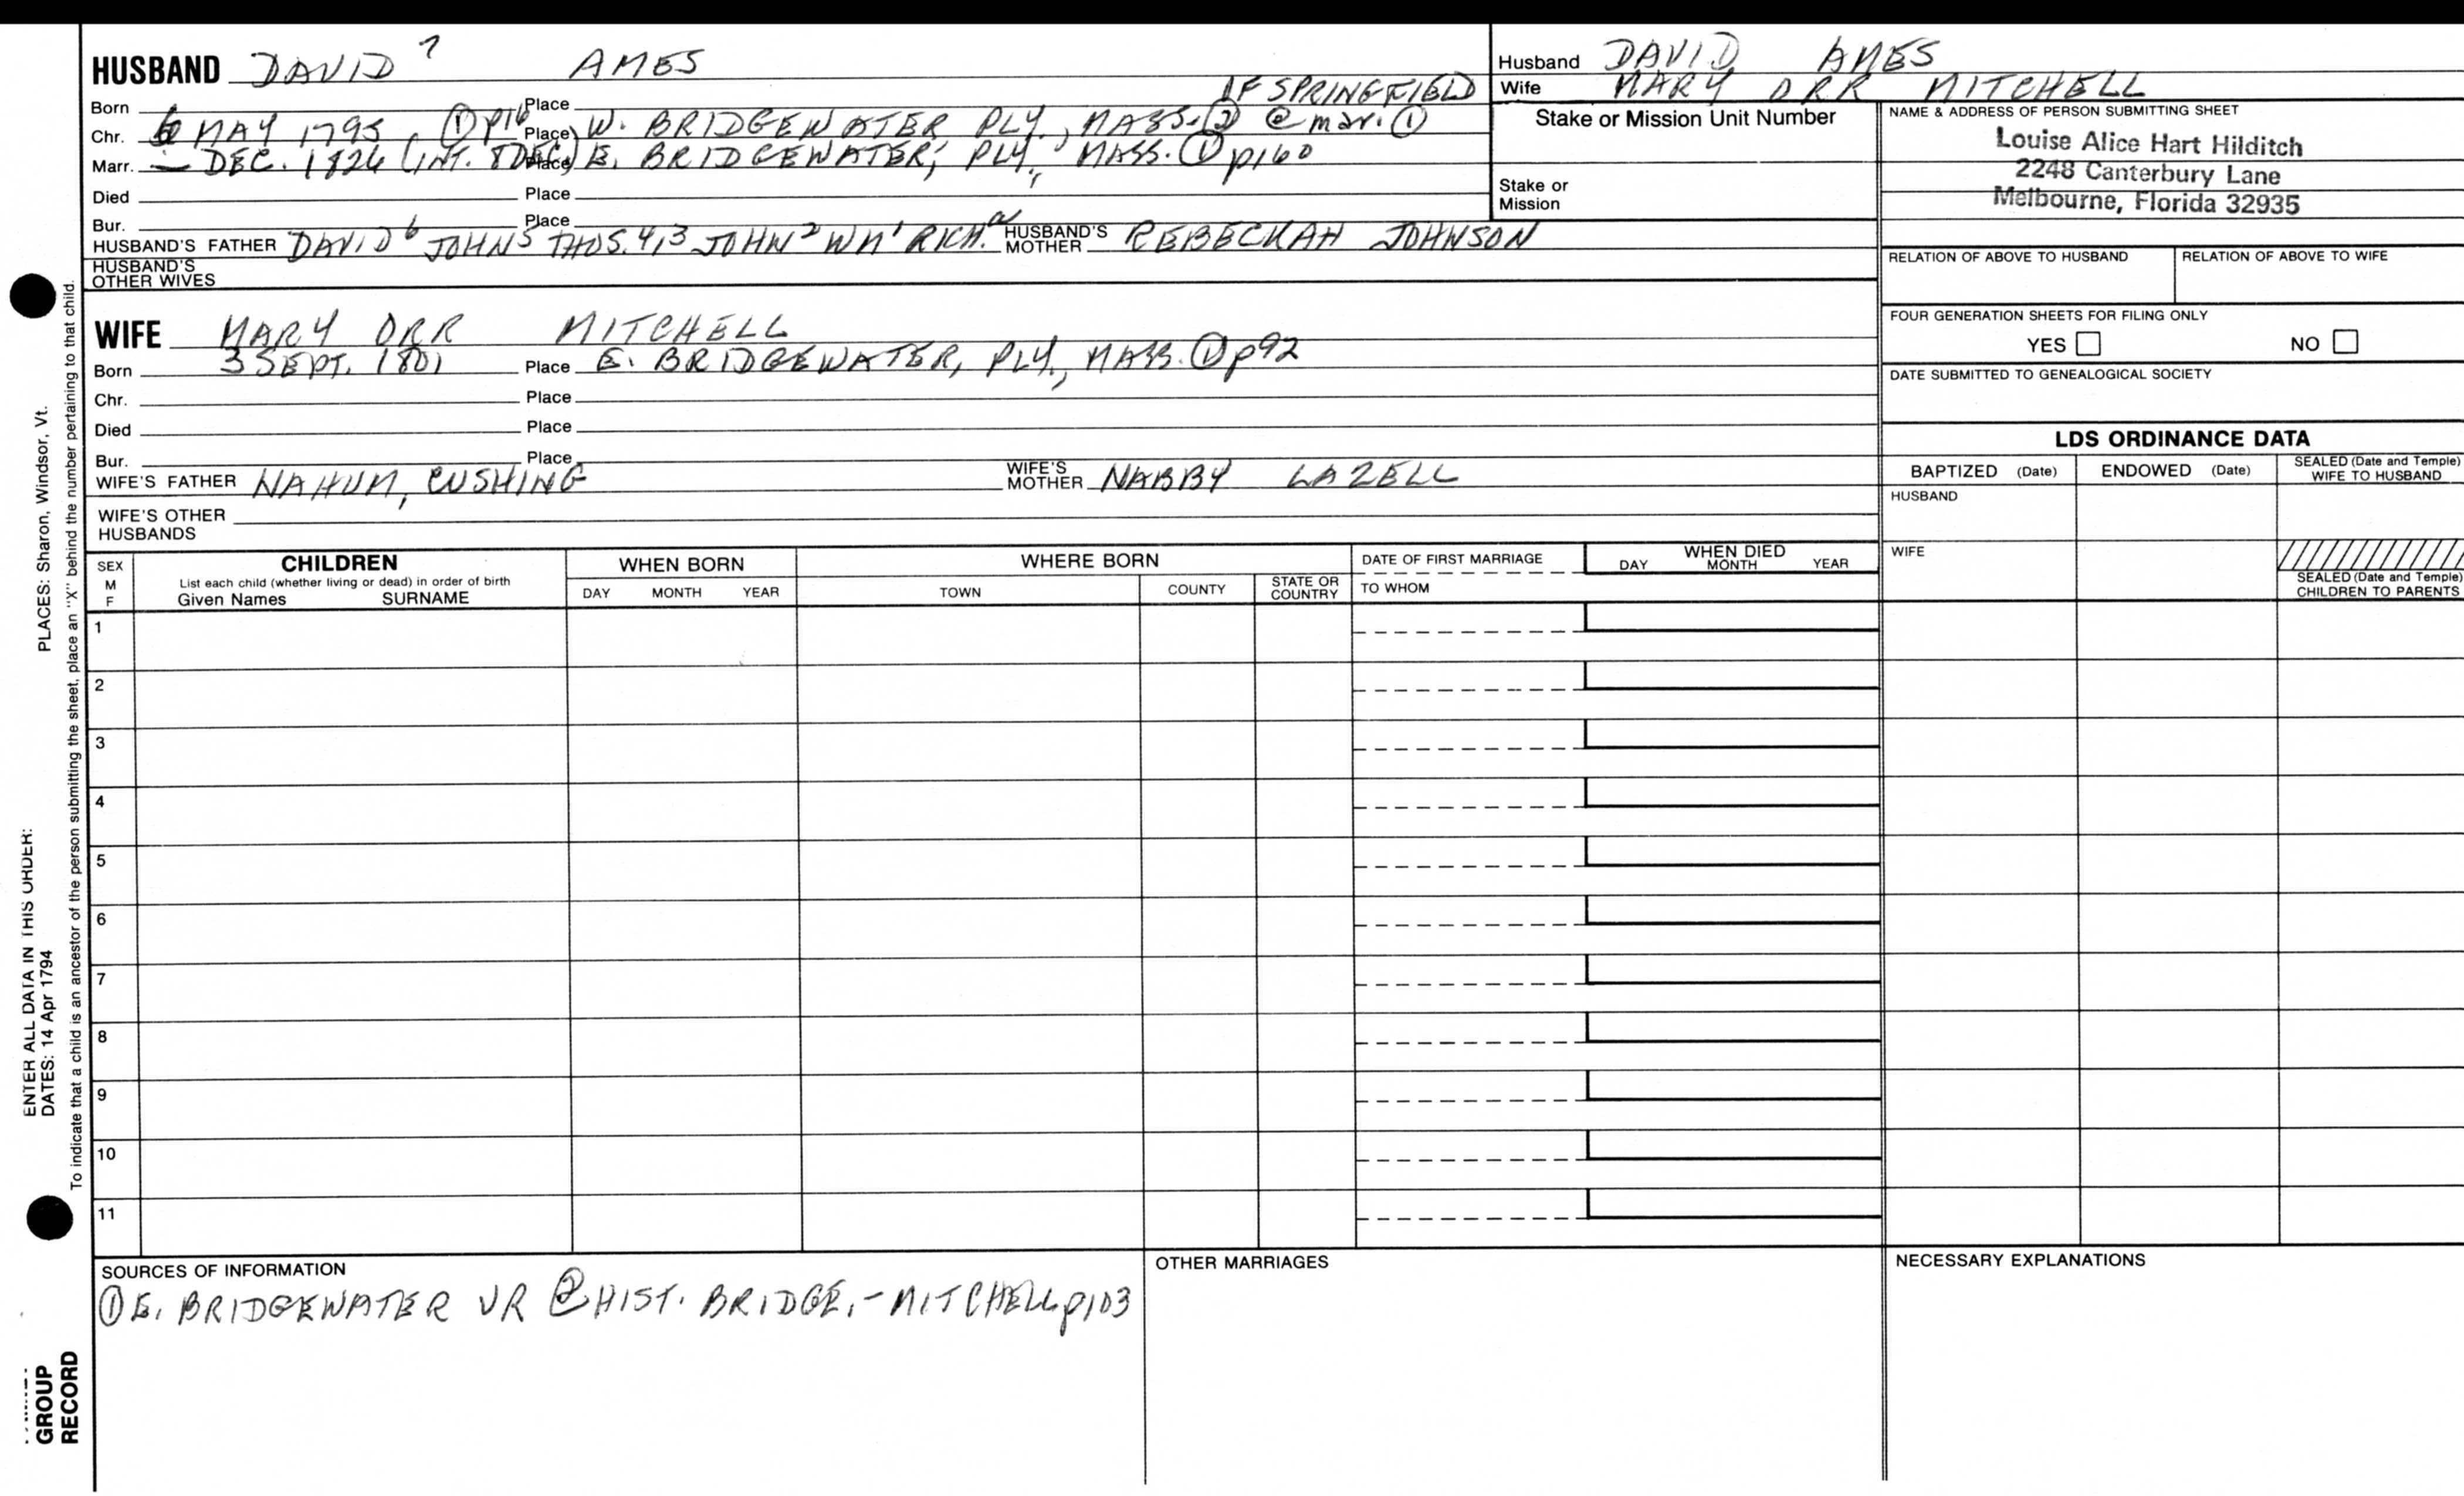 HUSBAND DAVID 7 AMES
Husband DAVID AMES
OF SPRINGFIELD
Wife MARY ORR MITCHELL
Born Place
Chr. 6 MAY 1795, ① p16 Place W. BRIDGEWATER PLY., MASS. ② @ mar. ①
Marr. — DEC. 1826 (INT. 8 DEC) Place E. BRIDGEWATER, PLY., MASS. ① p160
Died Place
Bur. Place
HUSBAND'S FATHER DAVID 6 JOHN 5 THOS. 4,3 JOHN 2 WM 1 RICH. a HUSBAND'S MOTHER REBECKAH JOHNSON
HUSBAND'S OTHER WIVES
Stake or Mission Unit Number
Stake or Mission
NAME & ADDRESS OF PERSON SUBMITTING SHEET
Louise Alice Hart Hilditch
2248 Canterbury Lane
Melbourne, Florida 32935
RELATION OF ABOVE TO HUSBAND RELATION OF ABOVE TO WIFE
FOUR GENERATION SHEETS FOR FILING ONLY
YES NO
DATE SUBMITTED TO GENEALOGICAL SOCIETY
WIFE MARY ORR MITCHELL
Born 3 SEPT. 1801 Place E. BRIDGEWATER, PLY., MASS. ① p92
Chr. Place
Died Place
Bur. Place
WIFE'S FATHER NAHUM, CUSHING WIFE'S MOTHER NABBY LAZELL
WIFE'S OTHER HUSBANDS
LDS ORDINANCE DATA
BAPTIZED (Date) ENDOWED (Date) SEALED (Date and Temple) WIFE TO HUSBAND
HUSBAND
WIFE
SEALED (Date and Temple) CHILDREN TO PARENTS
SEX M F
CHILDREN
List each child (whether living or dead) in order of birth
Given Names SURNAME
WHEN BORN
DAY MONTH YEAR
WHERE BORN
TOWN COUNTY STATE OR COUNTRY
DATE OF FIRST MARRIAGE
TO WHOM
WHEN DIED
DAY MONTH YEAR
1
2
3
4
5
6
7
8
9
10
11
SOURCES OF INFORMATION
① E. BRIDGEWATER VR ② HIST. BRIDGE. - MITCHELL p103
OTHER MARRIAGES
NECESSARY EXPLANATIONS
ENTER ALL DATA IN THIS ORDER:
DATES: 14 Apr 1794 PLACES: Sharon, Windsor, Vt.
To indicate that a child is an ancestor of the person submitting the sheet, place an "X" behind the number pertaining to that child.
GROUP
RECORD